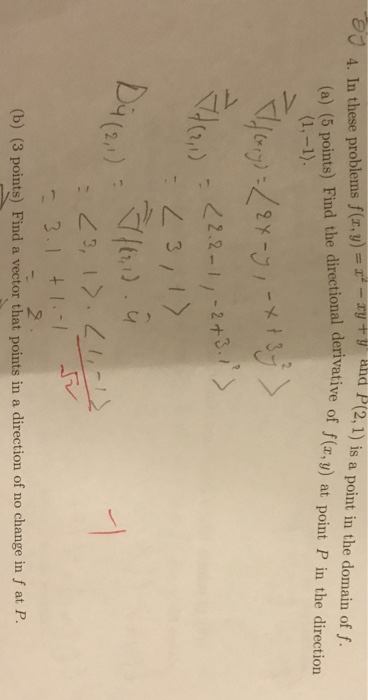 4. In these problems f(x, y) = x² − xy + y and P(2, 1) is a point in the domain of f.
(a) (5 points) Find the directional derivative of f(x, y) at point P in the direction
⟨1, −1⟩.
∇f(x,y) = ⟨2x − y, −x + 3y²⟩
∇f(2,1) = ⟨2.2 − 1, −2 + 3.1²⟩
= ⟨3, 1⟩
Du(2,1) = ∇f(2,1) . û
= ⟨3, 1⟩ . ⟨1, −1⟩
√2
= 3.1 + 1.−1
= 2.
−1
(b) (3 points) Find a vector that points in a direction of no change in f at P.